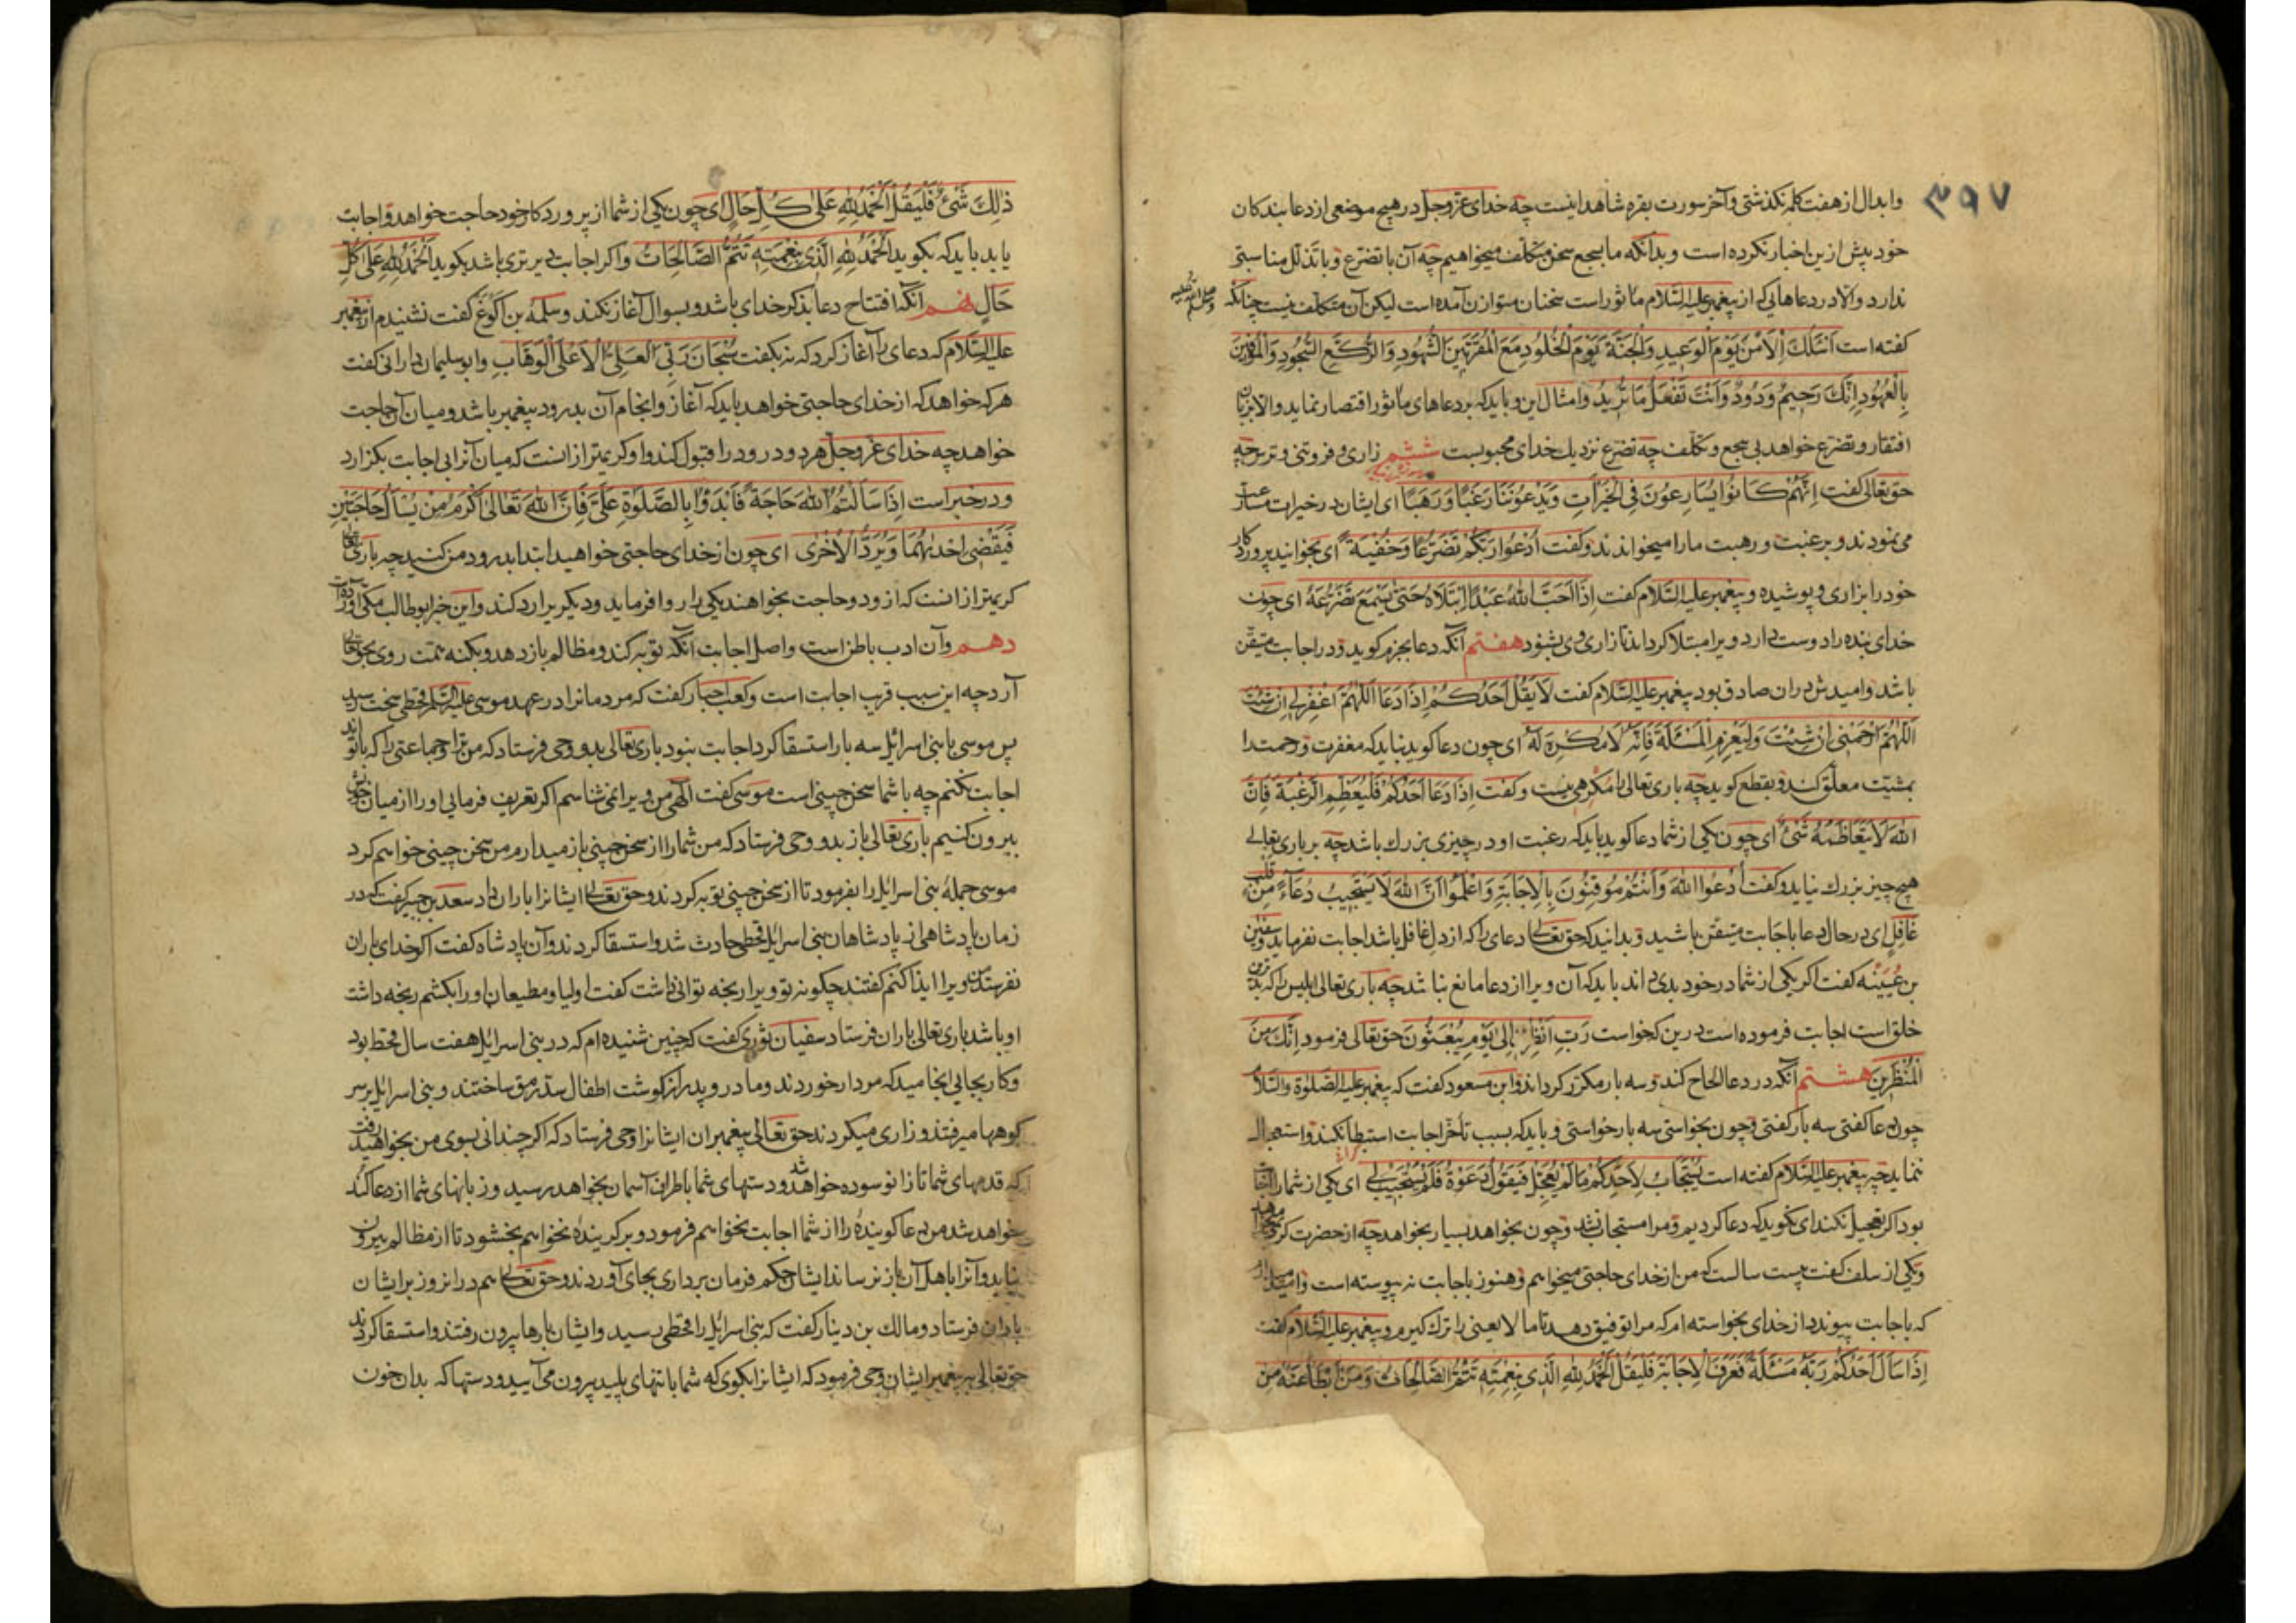 ۳۹۷
وابدال از هفت کلمه نکذشتی و آخر سورت بقره شاهد اینست چه خدای عزوجل در هیچ موضعی از دعا بندکان
خود بیش ازین اخبار نکرده است و بدانکه ما بسجع سخن متکلف میخواهیم چه آن با تضرع و با تذلل مناسبتی
ندارد والا در دعاهایی که از پیغمبر علیه السلام ماثور است سخنان متوازن آمده است لیکن آن متکلف نیست چنانکه
کفته است اَسْئَلُكَ الْاَمْنَ یَوْمَ الْوَعِیدِ وَالْجَنَّةَ یَوْمَ الْخُلُودِ مَعَ الْمُقَرَّبِینَ الشُّهُودِ وَالرُّکَّعِ السُّجُودِ وَالْمُوفِینَ
بِالْعُهُودِ اِنَّكَ رَحِیمٌ وَدُودٌ وَاَنْتَ تَفْعَلُ مَا تُرِیدُ وامثال این و باید که بر دعاهای ماثور اقتصار نماید والا بزبان
افتقار و تضرع خواهد بی سجع و تکلف چه تضرع نزدیك خدای محبوبست ششم زاری و فروتنی و ترس چه
حق تعالی کفت اِنَّهُمْ کَانُوا یُسَارِعُونَ فِی الْخَیْرَاتِ وَیَدْعُونَنَا رَغَبًا وَرَهَبًا ای ایشان در خیرات مسارعت
می نمودند و برغبت و رهبت ما را میخواندند وکفت اُدْعُوا رَبَّکُمْ تَضَرُّعًا وَخُفْیَةً ای بخوانید پروردکار
خود را بزاری و پوشیده و پیغمبر علیه السلام کفت اِذَا اَحَبَّ اللهُ عَبْدًا اِبْتَلَاهُ حَتّٰی یَسْمَعَ تَضَرُّعَهُ ای چون
خدای بنده را دوست دارد ویرا مبتلا کرداند تا زاری وی بشنود هفتم آنکه دعا بجزم کوید و در اجابت متیقن
باشد و امیدش دران صادق بود پیغمبر علیه السلام کفت لَا یَقُلْ اَحَدُکُمْ اِذَا دَعَا اَللّٰهُمَّ اغْفِرْلِی اِنْ شِئْتَ
اَللّٰهُمَّ ارْحَمْنِی اِنْ شِئْتَ وَلْیَعْزِمِ الْمَسْئَلَةَ فَاِنَّهُ لَا مُکْرِهَ لَهُ ای چون دعا کوید نباید که مغفرت و رحمت را
بمشیت معلق کند و بقطع کوید چه باری تعالی را مکرهی نیست وکفت اِذَا دَعَا اَحَدُکُمْ فَلْیُعَظِّمِ الرَّغْبَةَ فَاِنَّ
اللهَ لَا یَتَعَاظَمُهُ شَیْءٌ ای چون یکی از شما دعا کوید باید که رغبت او در چیزی بزرك باشد چه بر باری تعالی
هیچ چیز بزرك نیاید وکفت اُدْعُوا اللهَ وَاَنْتُمْ مُوقِنُونَ بِالْاِجَابَةِ وَاعْلَمُوا اَنَّ اللهَ لَا یَسْتَجِیبُ دُعَاءً مِنْ قَلْبٍ
غَافِلٍ ای در حال دعا باجابت متیقن باشید و بدانید که حق تعالی دعای را که از دل غافل باشد اجابت نفرماید و سفین
بن عُیَیْنه کفت اکر یکی از شما در خود بدی داند باید که آن ویرا از دعا مانع نباشد چه باری تعالی ابلیس را که بدترین
خلق است اجابت فرموده است درین که خواست رَبِّ اَنْظِرْنِی اِلٰی یَوْمِ یُبْعَثُونَ حق تعالی فرمود اِنَّكَ مِنَ
الْمُنْظَرِینَ هشتم آنکه در دعا الحاح کند و سه بار مکرر کرداند و ابن مسعود کفت که پیغمبر علیه الصلوة والسلام
چون دعا کفتی سه بار کفتی و چون بخواستی سه بار خواستی و باید که بسبب تأخر اجابت استبطا نکند و استعجال
ننماید چه پیغمبر علیه السلام کفته است یُسْتَجَابُ لِاَحَدِکُمْ مَا لَمْ یُعَجِّلْ فَیَقُولُ دَعَوْتُ فَلَمْ یُسْتَجَبْ لِی ای یکی از شما را اجابت
بود اکر تعجیل نکند ای نکوید که دعا کردیم و مرا مستجاب نشد و چون بخواهد بسیار بخواهد چه از حضرت کریم میخواهد
و یکی از سلف کفت بیست سالست که من از خدای حاجتی میخواهم و هنوز باجابت نه پیوسته است و امید دارم
که باجابت پیوندد از خدای بخواسته ام که مرا توفیق دهد تا ما لا یعنی را ترك کیرم و پیغمبر علیه السلام کفت
اِذَا سَاَلَ اَحَدُکُمْ رَبَّهُ مَسْئَلَةً فَعَرَفَ الْاِجَابَةَ فَلْیَقُلْ اَلْحَمْدُ لِلّٰهِ الَّذِی بِنِعْمَتِهِ تَتِمُّ الصَّالِحَاتُ وَمَنْ اَبْطَأَ عَنْهُ مِنْ
ذٰلِكَ شَیْءٌ فَلْیَقُلْ اَلْحَمْدُ لِلّٰهِ عَلٰی کُلِّ حَالٍ ای چون یکی از شما از پروردکار خود حاجت خواهد و اجابت
یابد باید که بکوید اَلْحَمْدُ لِلّٰهِ الَّذِی بِنِعْمَتِهِ تَتِمُّ الصَّالِحَاتُ و اکر اجابت دیرتری باشد بکوید اَلْحَمْدُ لِلّٰهِ عَلٰی کُلِّ
حَالٍ نهم آنکه افتتاح دعا بذکر خدای باشد و بسوال آغاز نکند و سلمة بن اکوع کفت نشنیدم از پیغمبر
علیه السلام که دعای را آغاز کرد که نه بکفت سُبْحَانَ رَبِّیَ الْعَلِیِّ الْاَعْلَی الْوَهَّابِ و ابو سلیمان دارانی کفت
هر که خواهد که از خدای حاجتی خواهد باید که آغاز و انجام آن بدرود پیغمبر باشد و میان آن حاجت
خواهد چه خدای عزوجل هر دو درود را قبول کند و او کریمتر ازانست که میان آنرا بی اجابت بکزارد
و در خبر است اِذَا سَاَلْتُمُ اللهَ حَاجَةً فَابْدَؤُا بِالصَّلٰوةِ عَلَیَّ فَاِنَّ اللهَ تَعَالٰی اَکْرَمُ مِنْ یُسْأَلَ حَاجَتَیْنِ
فَیَقْضِیَ اِحْدٰیهُمَا وَیَرُدَّ الْاُخْرٰی ای چون از خدای حاجتی خواهید ابتدا بدرود من کنید چه باری تعالی
کریمتر ازانست که ازو دو حاجت بخواهند یکی را روا فرماید و دیکریرا رد کند و این خبر ابو طالب مکی آورده است
دهم و آن ادب باطن است و اصل اجابت آنکه توبه کند و مظالم باز دهد و بکنه همت روی بحق تعالی
آرد چه این سبب قریب اجابت است و کعب احبار کفت که مردمانرا در عهد موسی علیه السلم قحطی سخت رسید
پس موسی با بنی اسرائل سه بار استسقا کرد اجابت نبود باری تعالی بدو وحی فرستاد که من ترا و جماعتی را که با تواند
اجابت نکنم چه با شما سخن چینی است موسی کفت الٰهی من ویرا نمی شناسم اکر تعریف فرمایی او را از میان خویش
بیرون کنیم باری تعالی باز بدو وحی فرستاد که من شما را از سخن چینی باز میدارم من سخن چینی خواهم کرد
موسی جملهٔ بنی اسرائل را بفرمود تا از سخن چینی توبه کردند و حق تعالی ایشانرا باران داد سعد بن جبیر کفت که در
زمان پادشاهی از پادشاهان بنی اسرائل قحطی حادث شد و استسقا کردند و آن پادشاه کفت اکر خدای باران
نفرستد ویرا ایذا کنم کفتند چکونه تو ویرا رنجه توانی داشت کفت اولیا و مطیعان او را بکشم رنجه داشت
او باشد باری تعالی باران فرستاد سفیان ثوری کفت که چنین شنیده ام که در بنی اسرائل هفت سال قحط بود
و کار بجایی انجامید که مردار خوردند و مادر و پدر از کوشت اطفال سد رمق ساختند و بنی اسرائل بر سر
کوهها میرفتند و زاری میکردند حق تعالی پیغمبران ایشانرا وحی فرستاد که اکر چندانی بسوی من بخواهید رفت
که قدمهای شما تا زانو سوده خواهد شد و دستهای شما باطراف آسمان بخواهد رسید و زبانهای شما از دعا کند
خواهد شد من دعا کویندهٔ را از شما اجابت نخواهم فرمود و بر کرینده نخواهم بخشود تا از مظالم بیرون
نیاید و آنرا باهل آن باز نرساند ایشان حکم فرمان برداری بجای آوردند و حق تعالی هم دران روز بر ایشان
باران فرستاد و مالك بن دینار کفت که بنی اسرائل را قحطی رسید و ایشان بارها بیرون رفتند و استسقا کردند
حق تعالی بر پیغمبر ایشان وحی فرمود که ایشانرا بکوی که شما با تنهای پلید بیرون می آیید و دستها که بدان خون